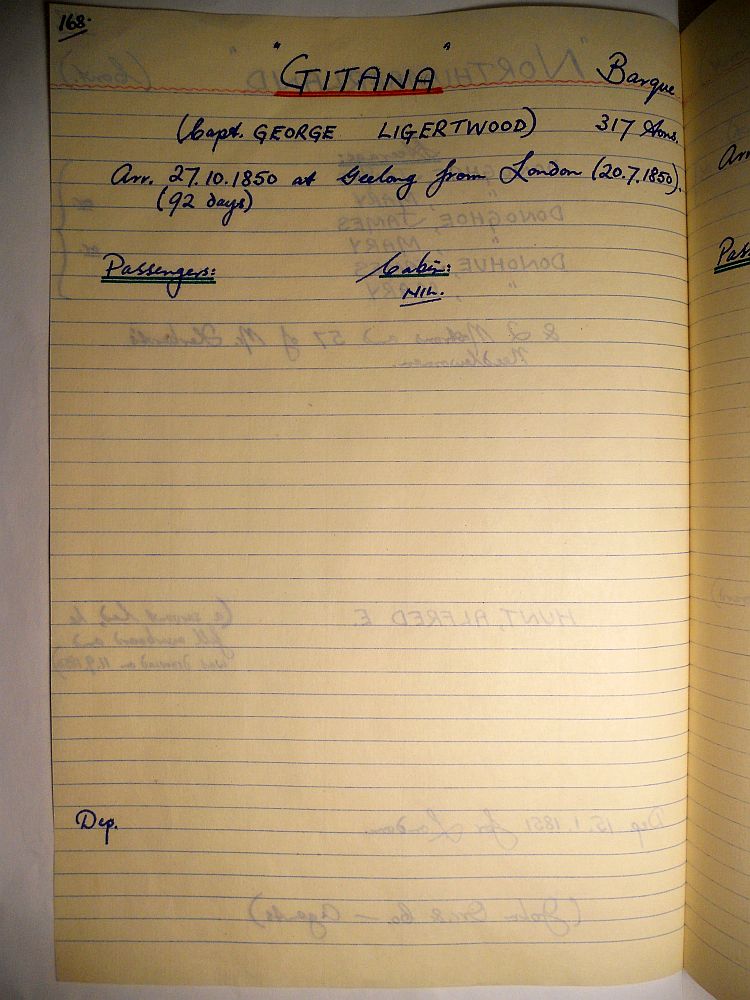 168.
"GITANA" Barque
(Capt. GEORGE LIGERTWOOD) 317 tons.
Arr. 27.10.1850 at Geelong from London (20.7.1850).
(92 days)
Passengers: Cabin:
NIL.
Dep.